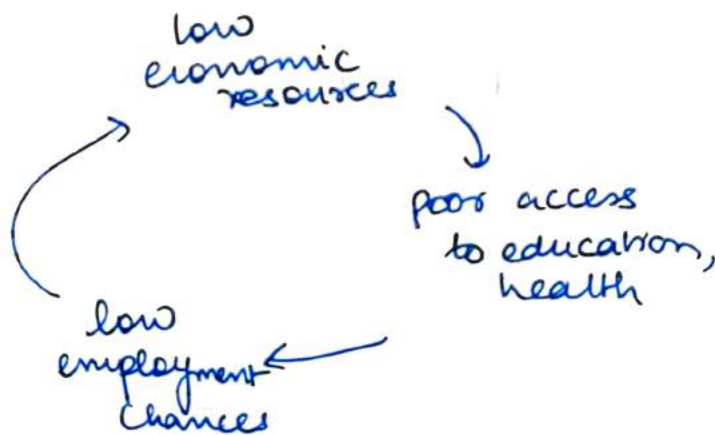 low
economic
resources
poor access
to education,
health
low
employment
chances